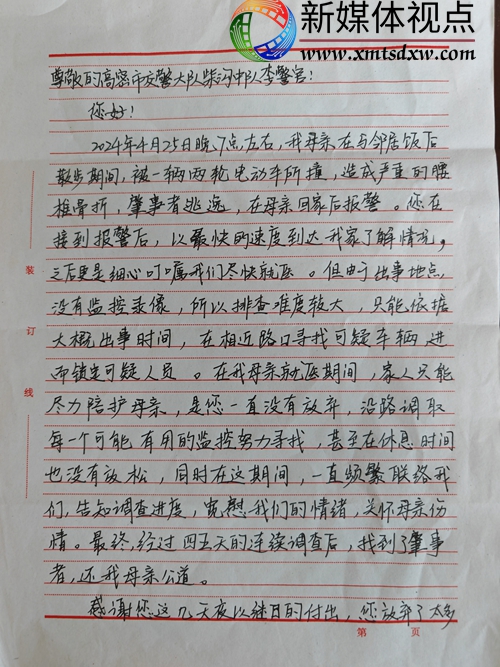 新媒体视点
www.xmtsdxw.com
尊敬的高密市交警大队柴沟中队李警官！
您好！
2024年4月25日晚7点左右，我母亲在与邻居饭后
散步期间，被一辆两轮电动车所撞，造成严重的腰
椎骨折，肇事者逃逸，在母亲回家后报警。您在
接到报警后，以最快的速度到达我家了解情况，
之后更是细心叮嘱我们尽快就医。但由于出事地点
没有监控录像，所以排查难度较大，只能依据
大概出事时间，在相近路口寻找可疑车辆，进
而锁定可疑人员。在我母亲就医期间，家人只能
尽力陪护母亲，是您一直没有放弃，沿路调取
每一个可能有用的监控努力寻找，甚至在休息时间
也没有放松，同时在这期间，一直频繁联络我
们，告知调查进度，宽慰我们的情绪，关怀母亲伤
情。最终，经过四五天的连续调查后，找到了肇事
者，还我母亲公道。
感谢您这几天夜以继日的付出，您放弃了太多
装
订
线
第 页